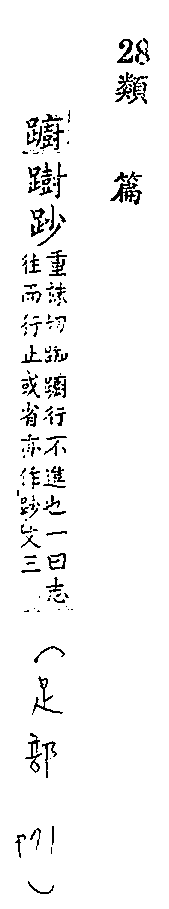 28類篇
躕
重誅切踟躕行不進也一曰志
往而行止或省亦作文三
(足部 P71)